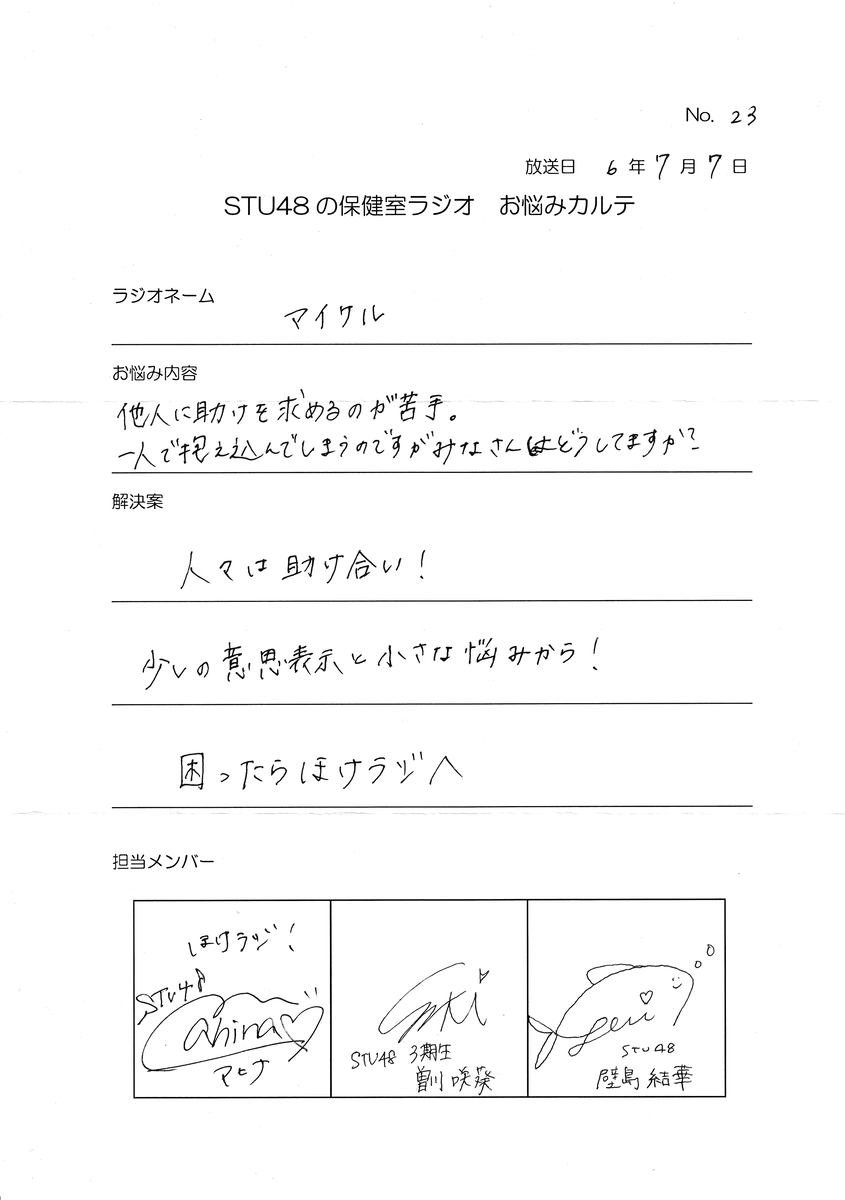 No. 23
放送日 6年7月7日
STU48の保健室ラジオ お悩みカルテ
ラジオネーム
マイケル
お悩み内容
他人に助けを求めるのが苦手。
一人で抱え込んでしまうのですがみなさんはどうしてますか?
解決案
人々は助け合い!
少しの意思表示と小さな悩みから!
困ったらほけラジへ
担当メンバー
ほけラジ!
STU48
ahina
マヒナ
STU48 3期生
曽川 咲葵
STU48
壁島 結華